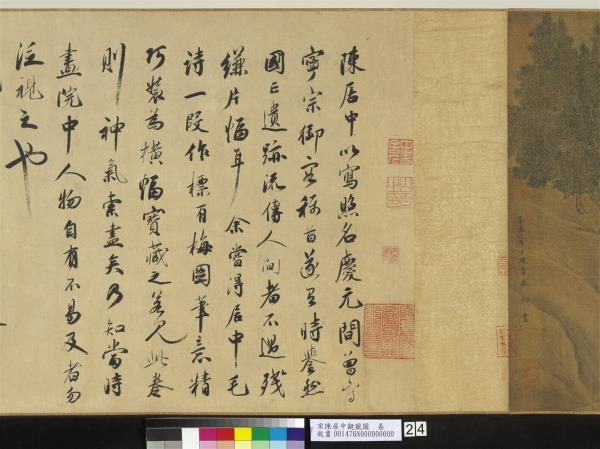 陳居中以寫照名慶元間曾寫
寧宗御容稱旨遂有時譽然
國亡遺跡流傳人間者不過殘
縑片幅耳余嘗得居中毛
詩一段作標有梅圖筆意精
巧裝為橫幅寶藏之若見此卷
則神氣索盡矣乃知當時
畫院中人物自有不易及者勿
泛視之也
宋陳居中觀獵圖 卷
故畫001476N000000000
24